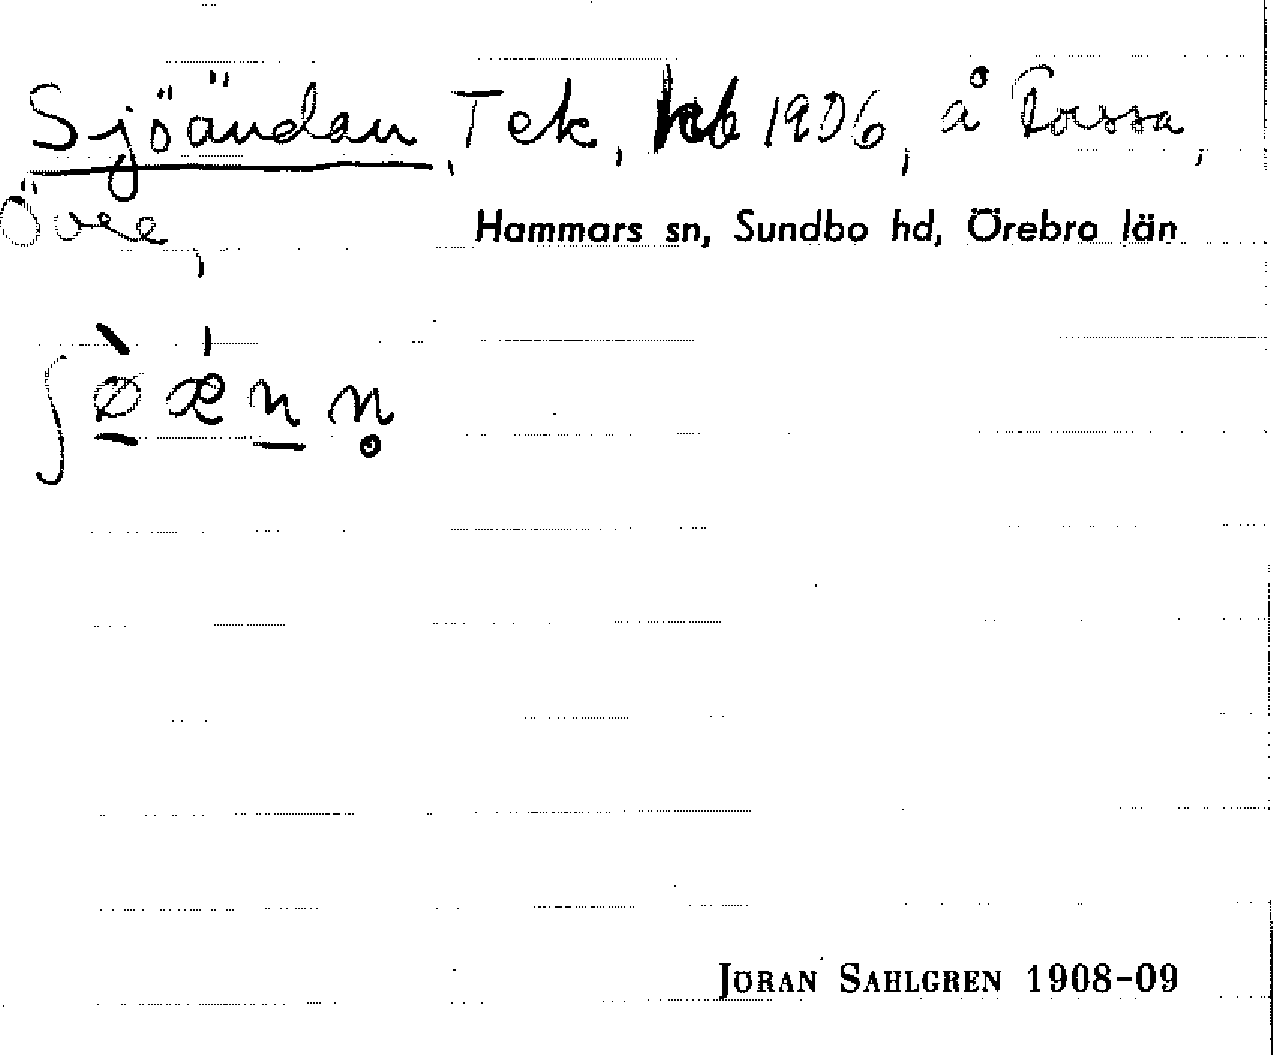 Sjöändan, Tek, hcb 1906, å Torssa,
Övre,
Hammars sn, Sundbo hd, Örebro län
ʃø̠̀ǽn̠n̥
JÖRAN SAHLGREN 1908-09